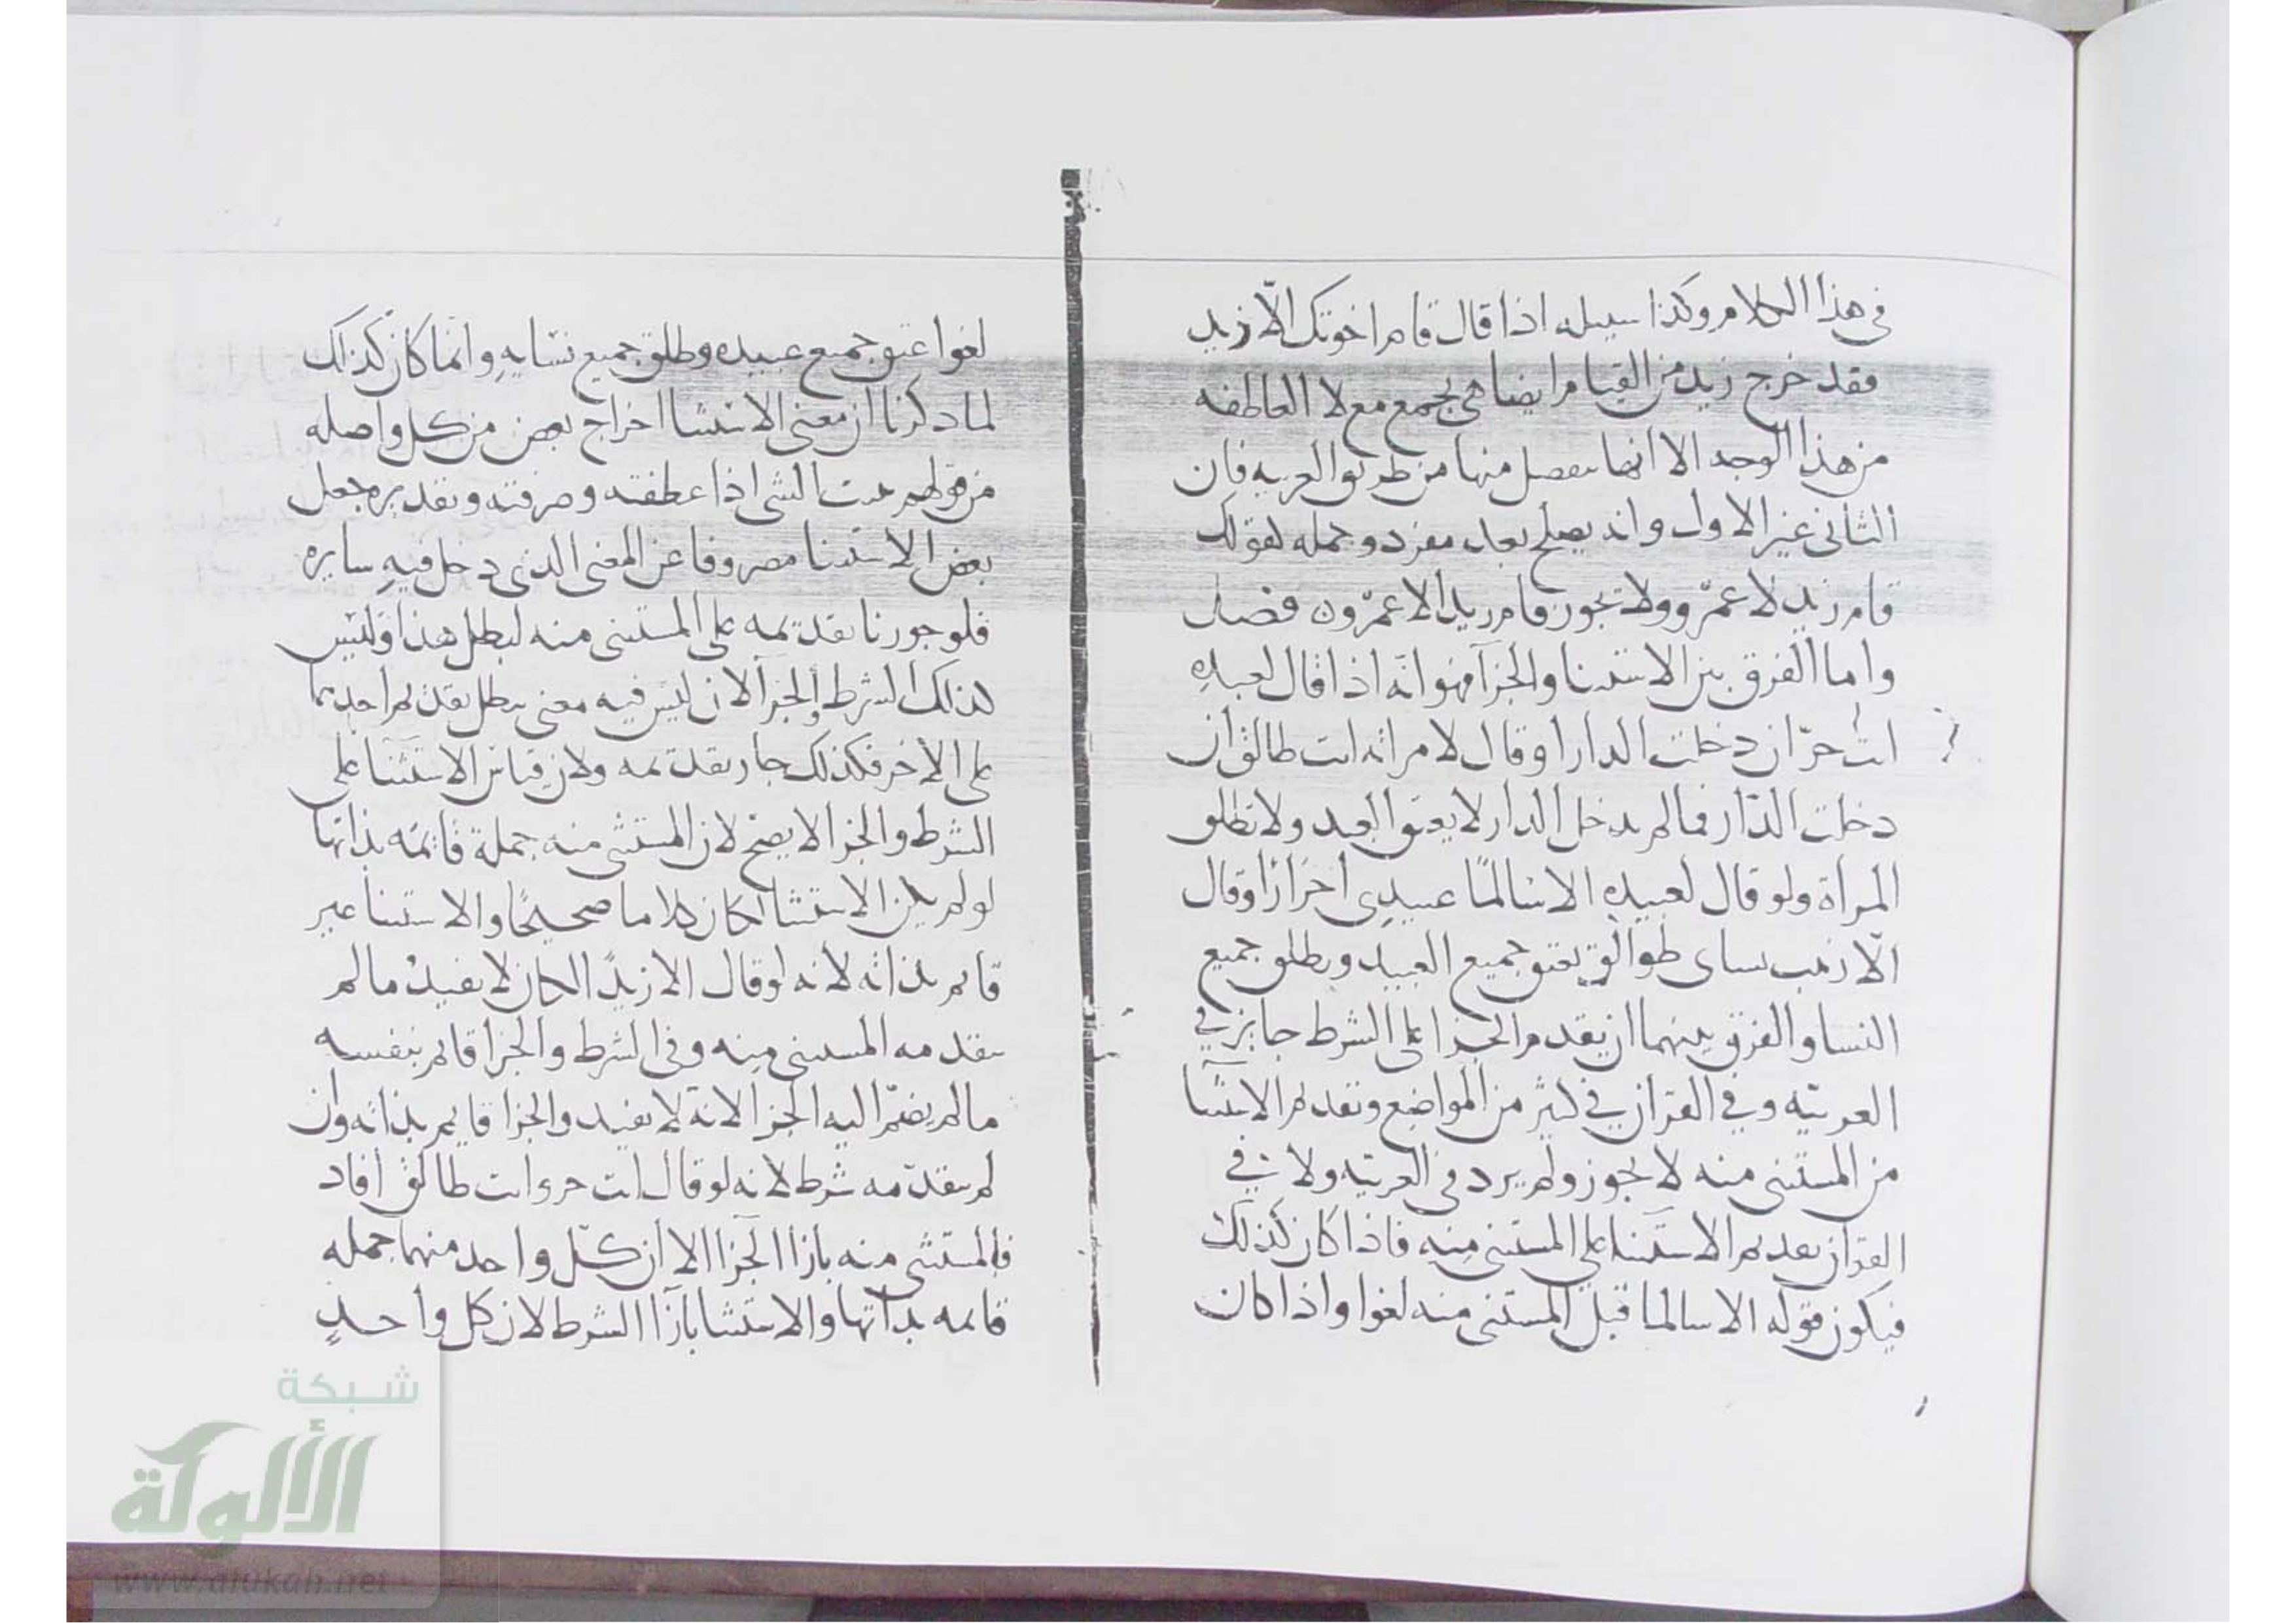 في هذا الكلام وكذا سبيله اذا قال قام اخوتك الّا زيد
فقد خرج زيد من القيام ايضا هي تجمع مع لا العاطفه
من هذا الوجه الا انها تنفصل منها من طريق العربيه فان
الثاني غير الاول وانه يصلح بعده مفرد وجمله كقولك
قام زيد لا عمرٌو ولا تجوز قام زيد الا عمرٌو ن فصل
واما الفرق بين الاستثنا والجزآ فهو انّه اذا قال لعبدِه
انت حرّ ان دخلت الدار او قال لامراته انت طالق ان
دخلت الدّار فما لم يدخل الدار لا يعتق العبد ولا تطلق
المرأة ولو قال لعبيدِه الا سالمًا عبيدِي احرارٌ او قال
الّا زينب نساي طوالق يعتق جميع العبيد ويطلق جميع
النسا والفرق بينهما ان يقدم الجزا على الشرط جايز في
العربيّه وفي القرآن في كثير من المواضع وتقديم الاستثنا
من المستثنى منه لا يجوز ولم يرد في العربيّه ولا في
القرآن تقديم الاستثنا على المستثنى مِنه فاذا كان كذلك
فيكون قوله الا سالما قبل المستثنى منه لغوا واذا كان
لغوا عتق جميع عبيده وطلق جميع نسايهِ وانّما كان كذلك
لما ذكرنا ان معنى الاستثنا اخراج بعض من كل واصله
من قولهم ثنيت الشي اذا عطفته وصرفته وتقديره جعل
بعض الاستثنا مصروفا عن المعنى الذي دخل فيهِ سايره
فلو جوزنا تقديمه على المستثنى منه لبطل هذا وليس
كذلك الشرط والجزآ لان ليس فيه معنى يبطل بتقديم احدهما
على الآخر فكذلك جاز تقديمه ولان قياس الاستثنا على
الشرط والجزا لا يصحّ لان المستثنى منه جملة قايمَه بذاتها
لو لم يكن الاستثنا لكان كلاما صحيحًا والاستثنا غير
قايم بذاته لانه لو قال الا زيدًا لكان لا يفيدُ ما لم
يتقدمه المستثنى مِنه وفي الشرط والجزا قايم بنفسه
ما لم يضمّ اليه الجزا لانه لا يفيد والجزا قايم بذاته وان
لم يتقدّمه شرط لانه لو قال انت حر وانت طالق افاد
فالمستثنى منه بازا الجزا الا ان كلّ واحد منهما جمله
قايمه بذاتها والاستثنا بازآ الشرط لان كل واحدٍ
شبكة
الألوكة
www.alukah.net